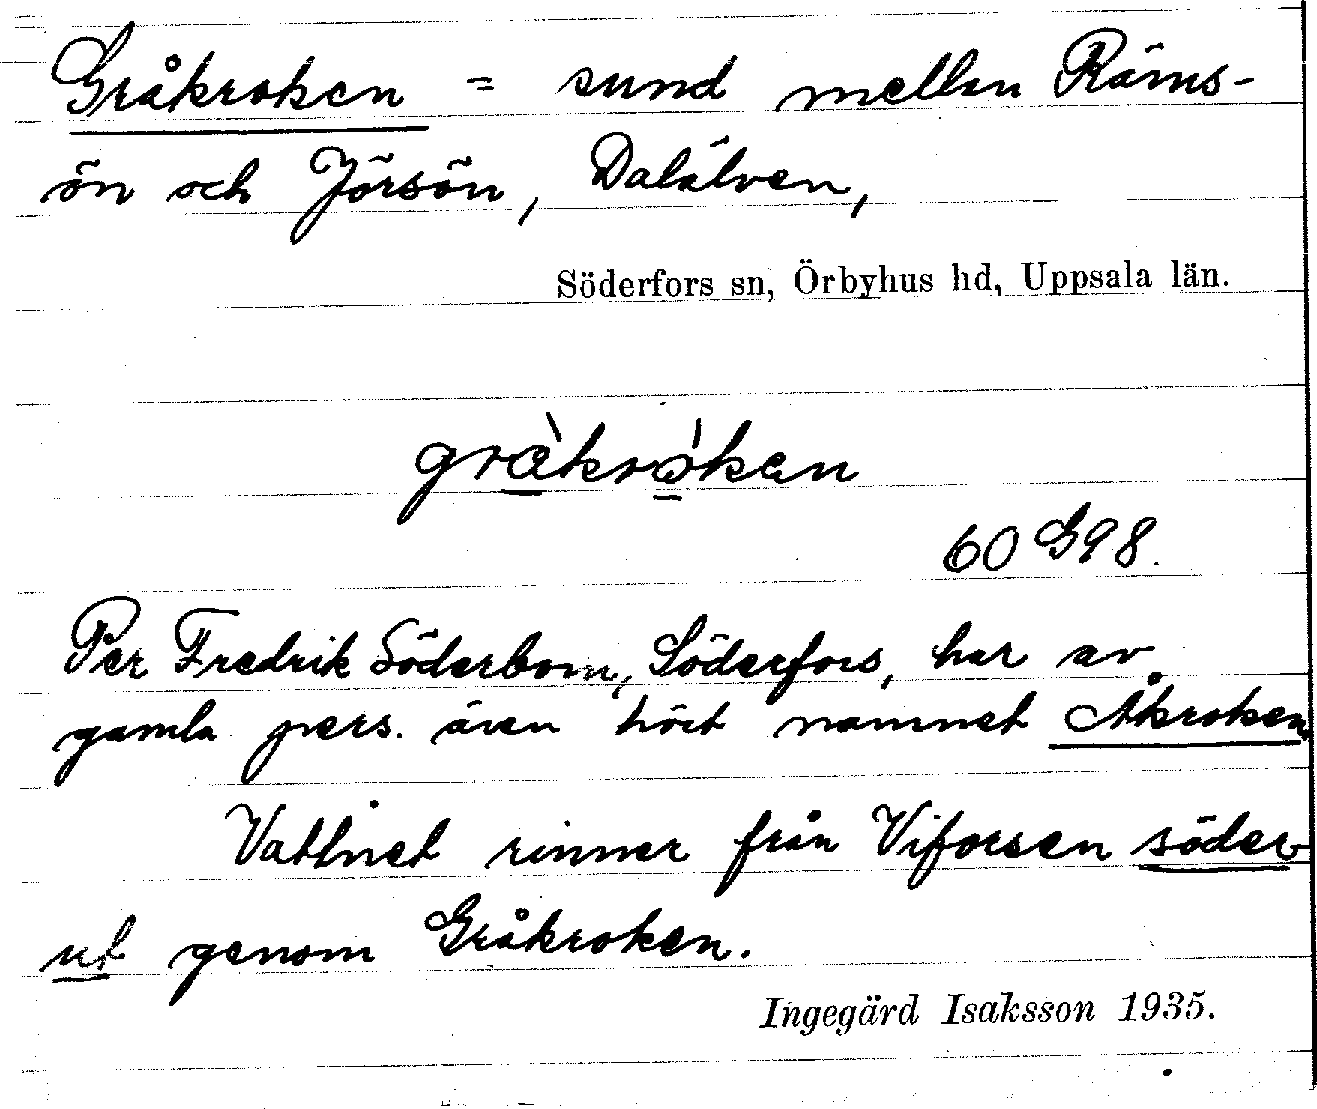 Gråkroken = sund mellan Räms-
ön och Jörsön, Dalälven,
Söderfors sn, Örbyhus hd, Uppsala län.
gràkrókan
60 G98.
Per Fredrik Söderbom, Söderfors, har av
gamla pers. även hört namnet Åkroken.
Vattnet rinner från Viforsen söder
ut genom Gråkroken.
Ingegärd Isaksson 1935.